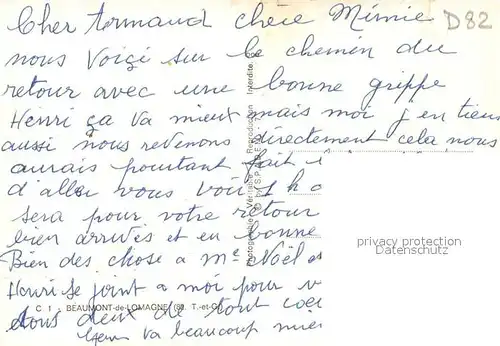 Cher Armand chère Mimie
D82
nous Voiçi sur le chemin du
retour avec une bonne grippe
Henri ça va mieux mais moi j en tiens
aussi nous revenons directement cela nous
aurais pourtant fait
d'aller vous voir
sera pour votre retour
bien arrivés et en bonne
Bien des chose a Me Noël et
Henri se joint a moi pour v
tous deux de tout coeu
va beaucoup mieu
C I BEAUMONT-de-LOMAGNE (82. T.-et-G.)
Photographie Véritable Reproduction Interdite
privacy protection
Datenschutz